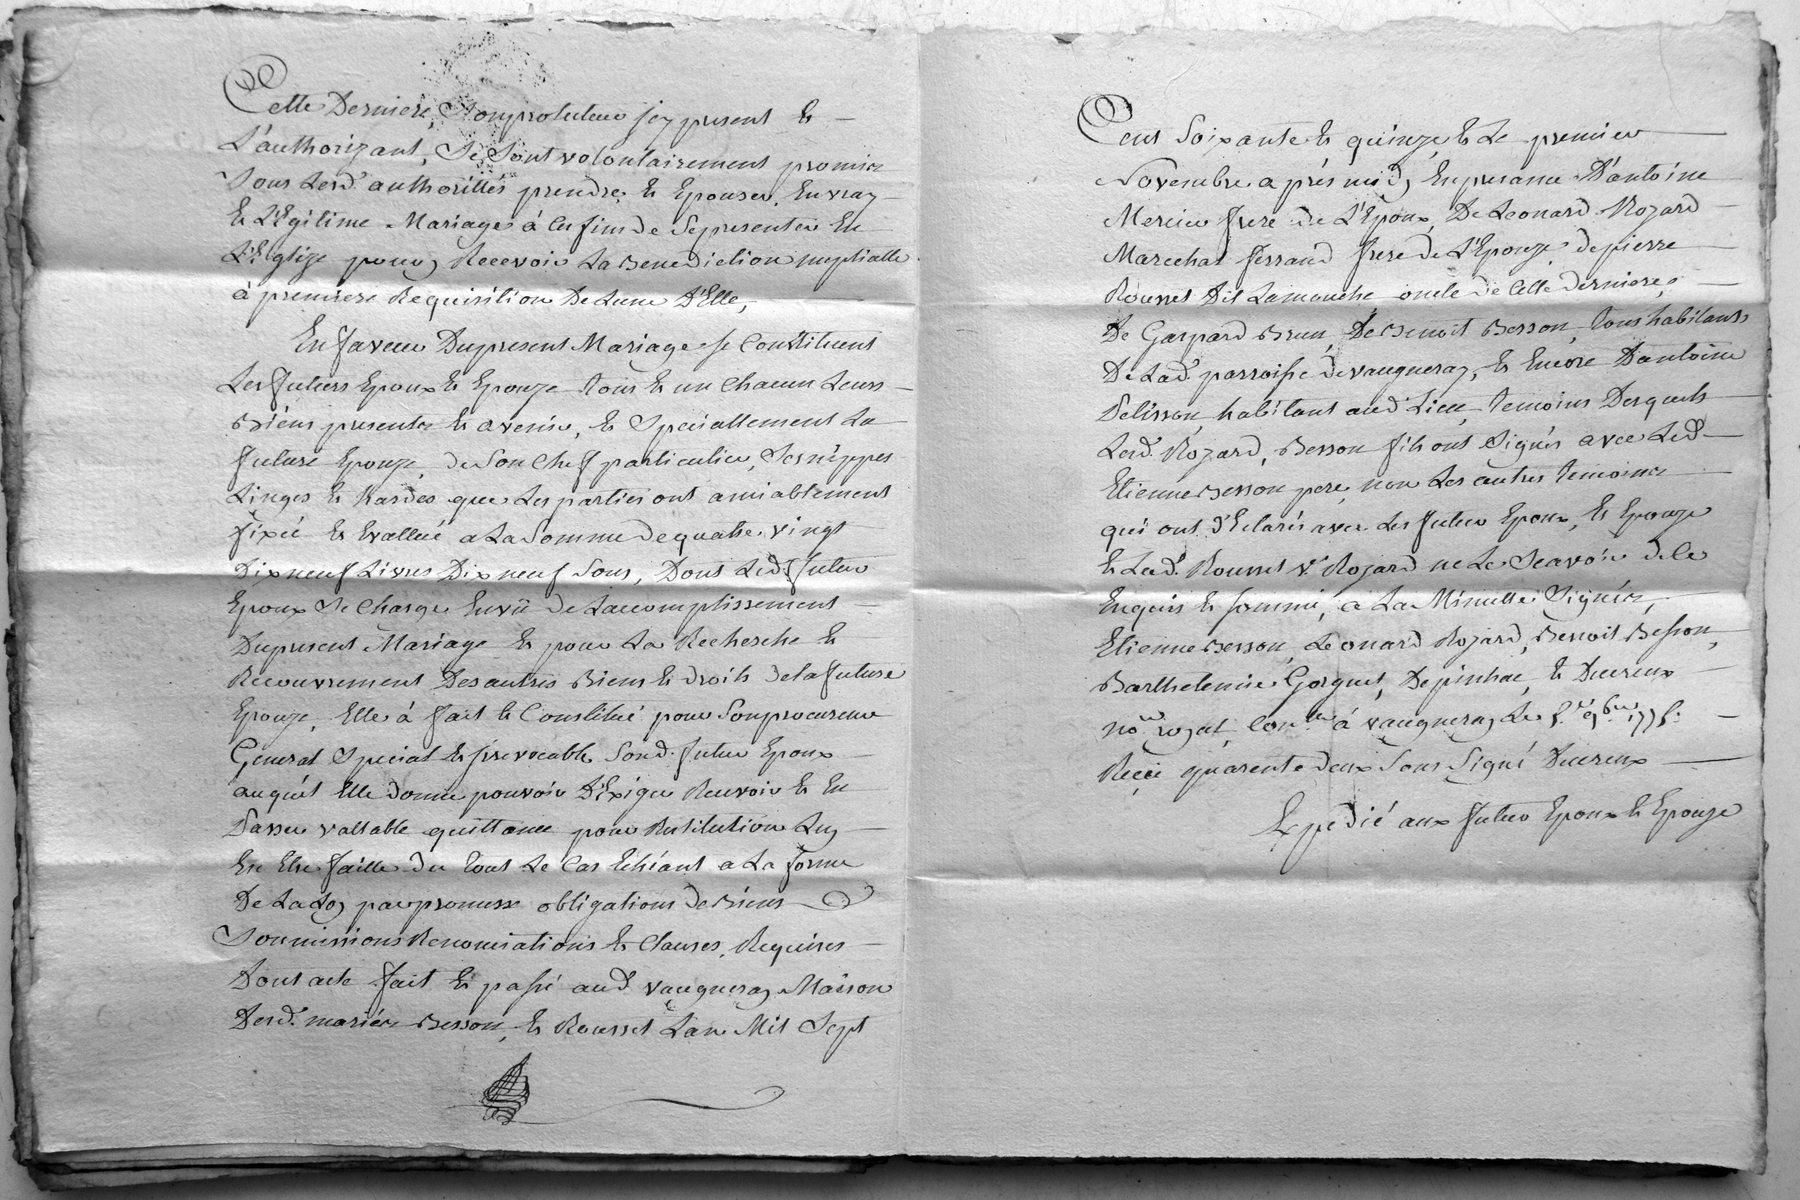 Cette Derniere, Son protuteur jcy present Et
L'authorizant, Se Sont volontairement promis
Sous Lesd. authorittés prendre Et Epouser En vray
Et L'Egitime Mariage à Ces fins de Se presenter En
L'Eglize pour y Recevoir La Benediction nuptialle
à premiere Requisition De L'une D'Elle,
En faveur Du present Mariage se Constituent
Les futurs Epoux Et Epouze Tous Et un Chacun Leurs
Biens presents Et avenir, Et Speciallement La
future Epouze, de Son Chef particulier, Ses nippes
Linges Et Hardes que Les parties ont amiablement
fixé Et Evallué a La Somme de quatre vingt
Dix neuf Livres Dix neuf Sous, Dont Led. futur
Epoux Se Charge En vüe de L'accomplissement
Du present Mariage Et pour La Recherche Et
Recouvrement Des autres Biens Et droits de la future
Epouze, Elle à fait Et Constitué pour Son procureur
General Special Et jrrevocable Sond. futur Epoux
auquel Elle donne pouvoir D'Exiger Recevoir Et En
Passer vallable quittance pour Restitution Luy
En Etre faitte du Tout Le Cas Echéant a La forme
De La Loy par promesse obligations de Biens
Soumissions Renonciations Et Clauses Requises
Dont acte fait Et passé aud. vaugneray Maison
Desd. mariés Besson, Et Rousset L'an Mil Sept
Cent Soixante Et quinze Et Le premier
Novembre après midy En presence D'antoine
Mercier frere de L'Epoux, De Leonard Rozard
Marechal ferrand frere de L'Epouze, de pierre
Rousset Dit Lamouche oncle de Cette derniere,
De Gaspard Brun, De Benoit Besson, Tous habitants
De Lad. parroisse de vaugneray, Et Encore D'antoine
Pelisson, habitant aud. Lieu, Temoins Desquels
Lesd. Rozard, Besson fils ont Signés avec Led.
Etienne Besson pere non Les autres Temoins
qui ont D'Eclarés avec Les futur Epoux, Et Epouze
Et Lad. Rousset Ve Rozard ne Le Scavoir de Ce
Enquis Et Sommé, a La Minutte Signés,
Etienne Besson, Leonard Rozard, Benoit Besson,
Barthelemie Gorguet, Depinhac, Et Ducreux
nore royal, Con.le à vaugneray Le 5.e 9bre 1775.
Reçu quarente deux Sous Signé Ducreux
Expedié aux futur Epoux Et Epouze